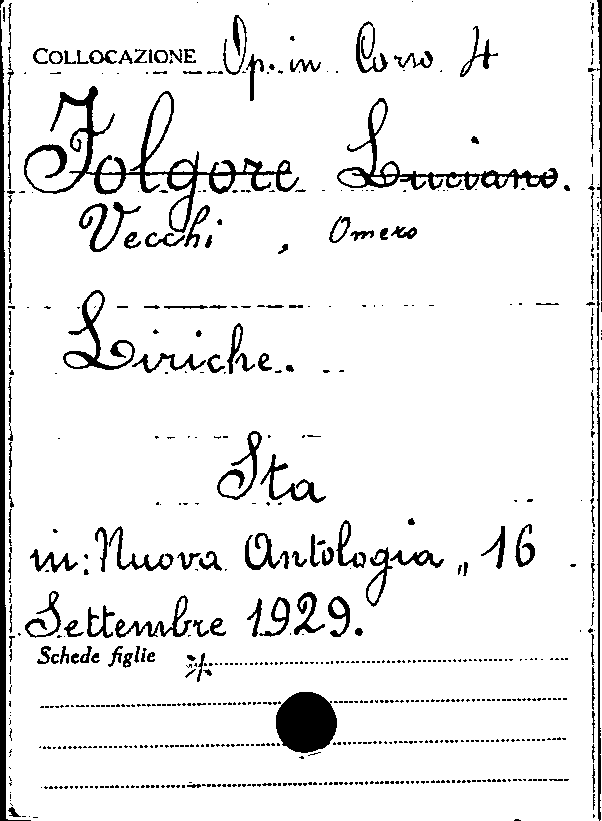 COLLOCAZIONE Op. in Corso 4
Folgore Luciano.
Vecchi, Omero
Liriche.
Sta
in: Nuova Antologia „ 16
Settembre 1929.
Schede figlie *